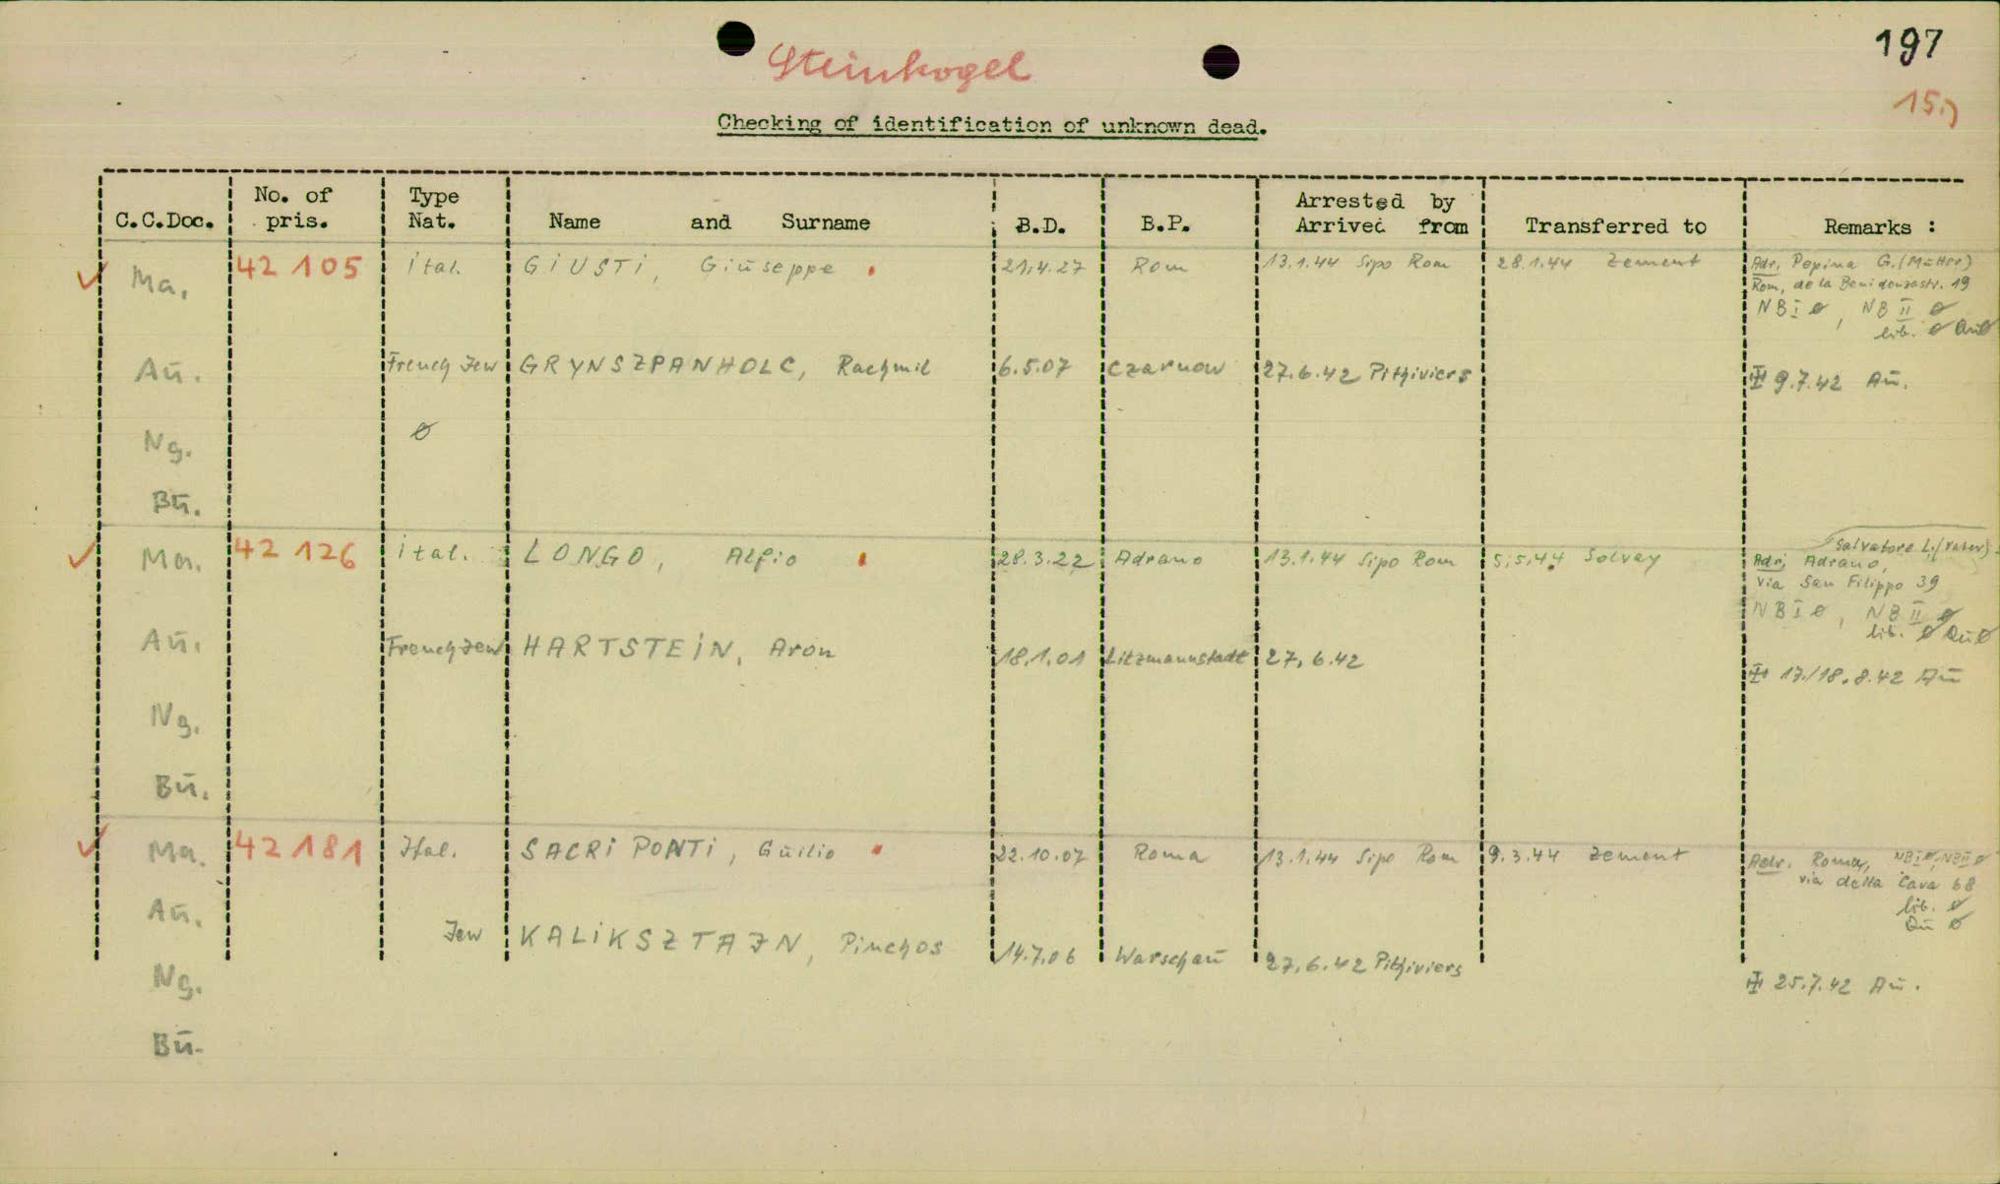 197
Steinkogel
15.)
Checking of identification of unknown dead.
C.C.Doc. No. of pris. Type Nat. Name and Surname B.D. B.P. Arrested by Arrived from Transferred to Remarks :
Ma. 42 105 ital. GiUSTi, Giūseppe 21.4.27 Rom 13.1.44 Sipo Rom 28.1.44 Zement Adr. Pepina G. (Mutter)
Rom, de la 19
NB I ø, NB II ø
lib. ø Qūø
Aū. French Jew GRYNSZPANHOLC, Rachmil 6.5.07 Czarnow 27.6.42 Pithiviers 9.7.42 Aū.
Ng. ø
Bū.
Ma. 42 126 ital. LONGO, Alfio 28.3.22 Adrano 13.1.44 Sipo Rom 5.5.44 Solvay Salvatore L. (Vater)
Adr. Adrano,
via San Filippo 39
NB I ø, NB II ø
lib. ø Qūø
Aū. French Jew HARTSTEiN, Aron 18.1.01 Litzmannstadt 27.6.42 17./18.8.42 Aū
Ng.
Bū.
Ma. 42 181 Ital. SACRi PONTi, Gūilio 22.10.07 Roma 13.1.44 Sipo Rom 9.3.44 Zement Adr. Roma, NB I ø, NB II ø
via della Cava 68
lib. ø
Qū ø
Aū. Jew KALiKSZTAJN, Pinchos 14.7.06 Warschaū 27.6.42 Pithiviers 25.7.42 Aū.
Ng.
Bū.